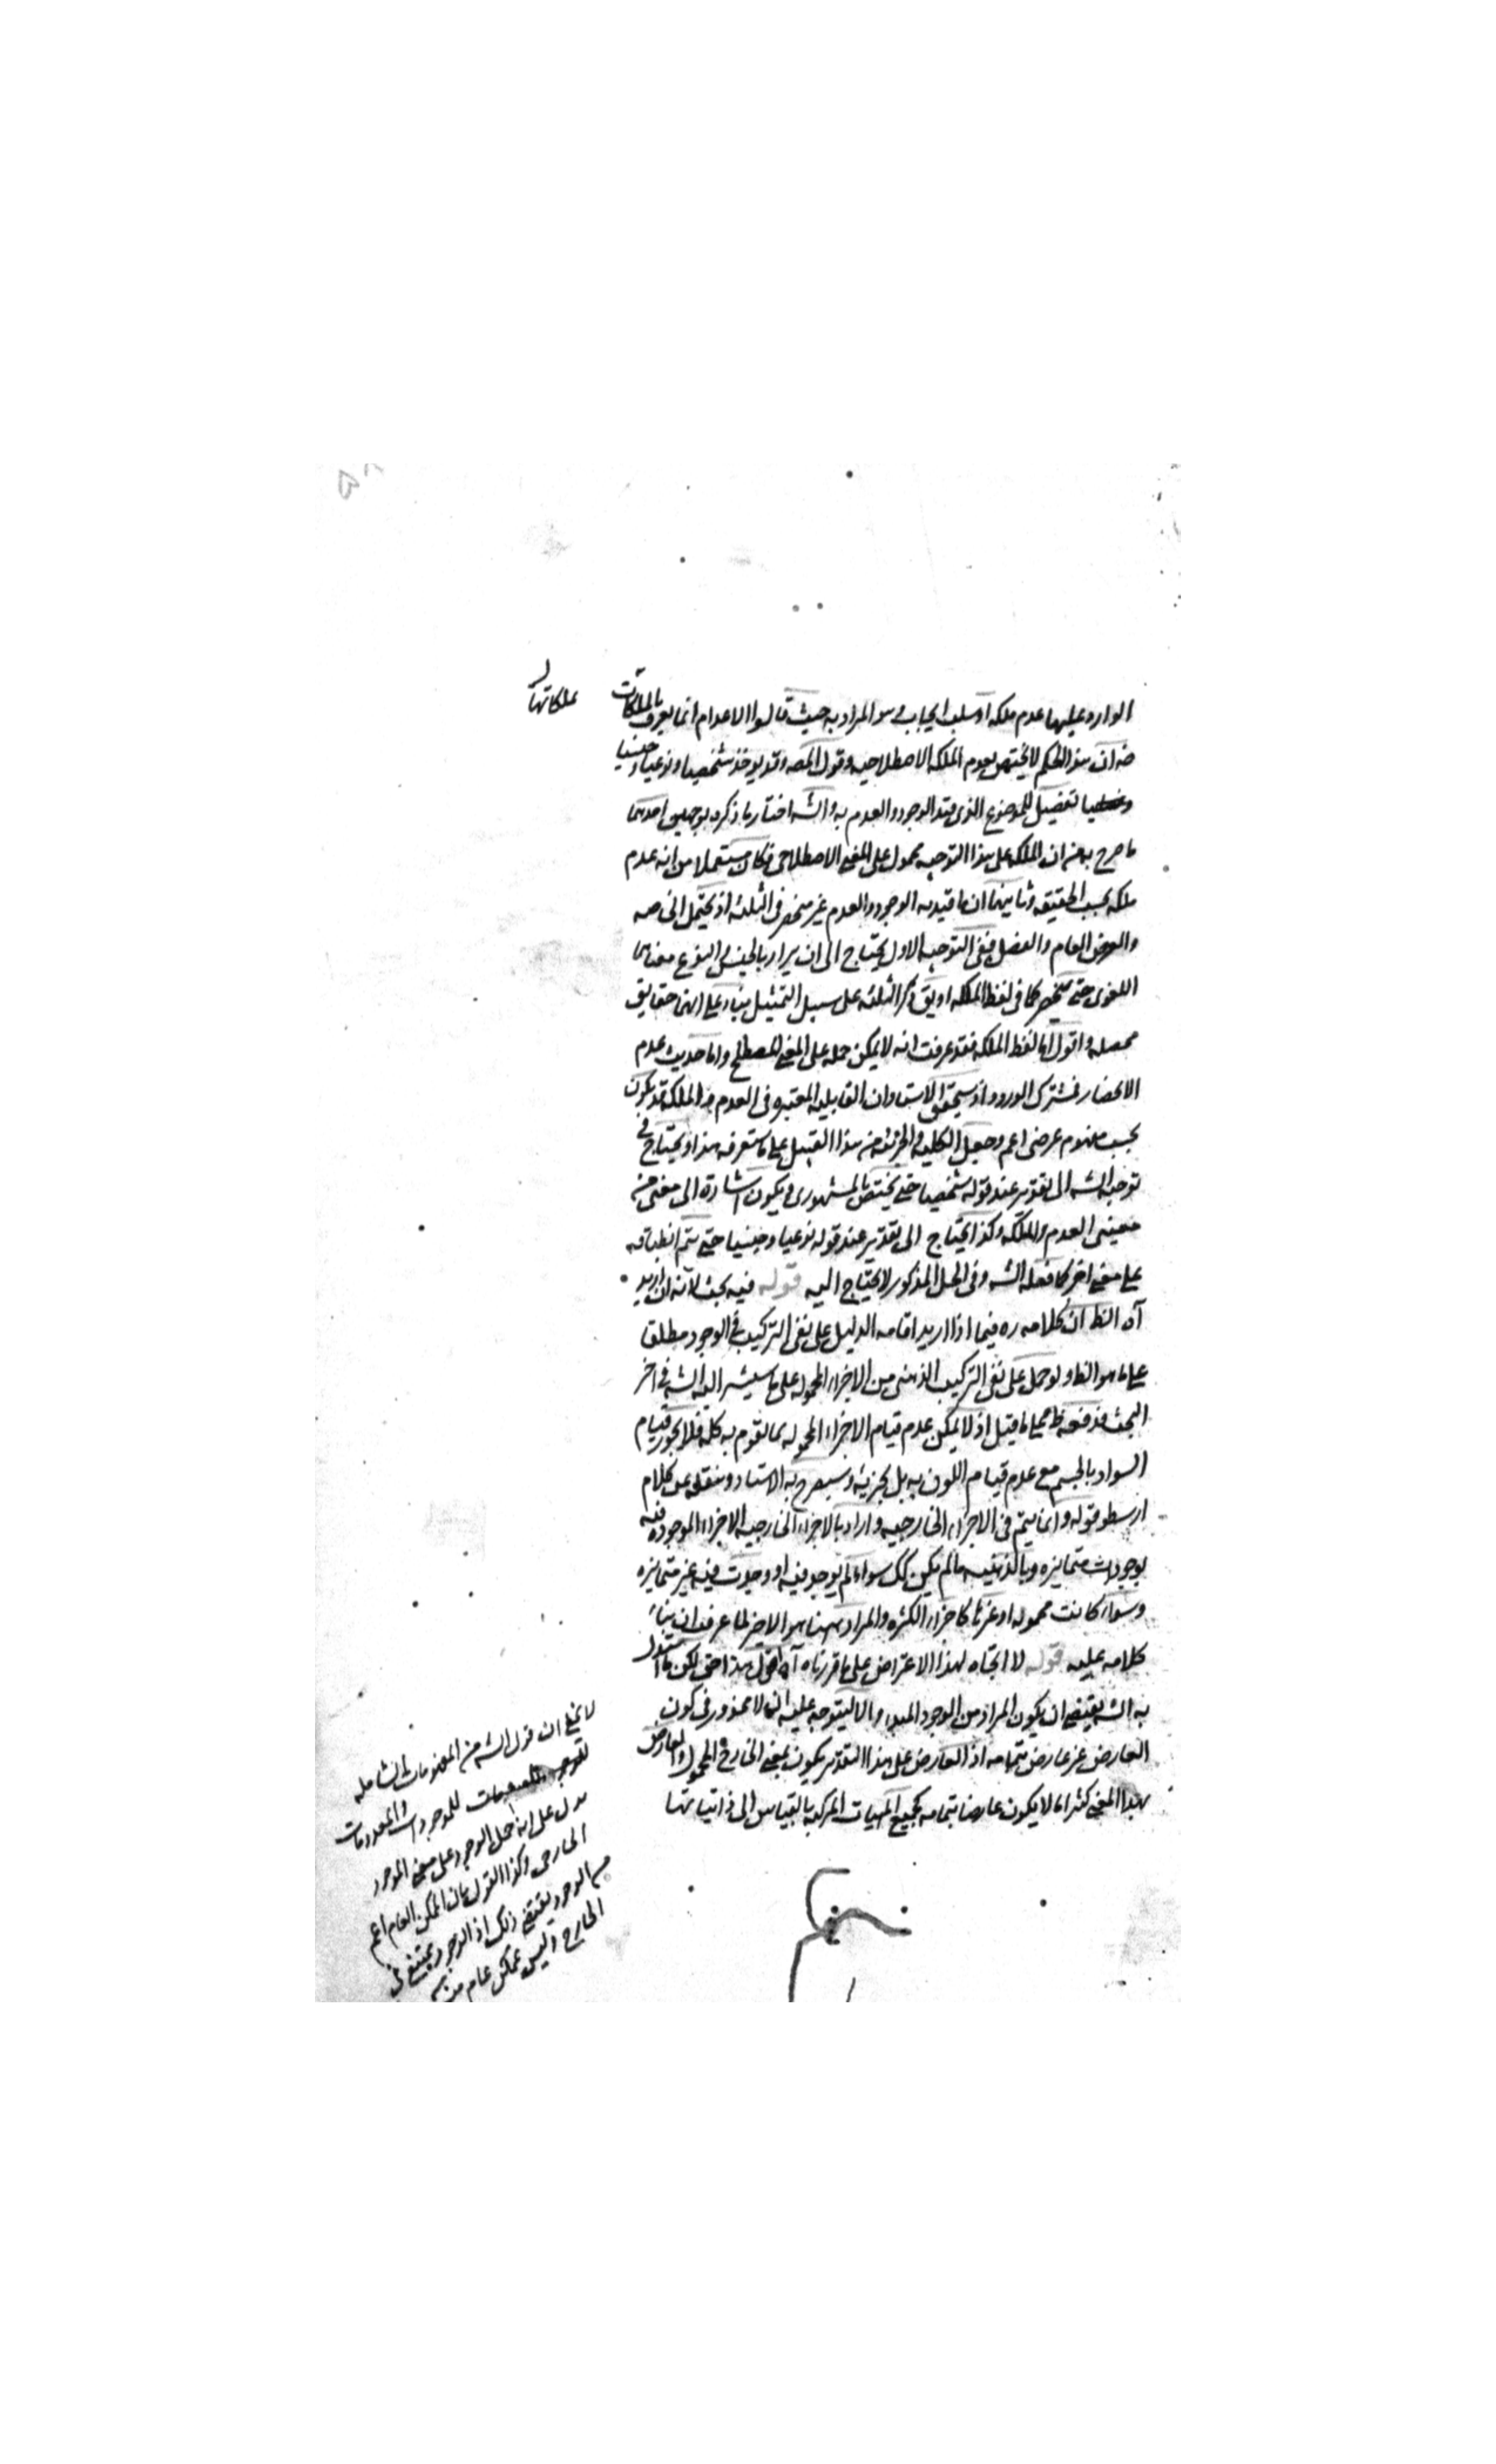 الوارد عليها عدم ملكه او سلب ايجاب هو المراد به حيث قالوا الاعدام انما يعرف بالملكات
ملكاتها
ان هذا الحكم لا يختص بعدم الملكه الاصطلاحيه وقول المصه وقد يوخذ شخصيا ونوعيا وجنسيا
تفصيل للموضوع الذى قيد الوجود والعدم به والشه اختار ما ذكره بوجهين احدهما
ما صرح به من ان الملكه على هذا التوجيه محمول على المعنى الاصطلاحى فكان مستعملا من انه عدم
ملكه بحسب الحقيقه وثانيهما ان ما قيد به الوجود والعدم غير منحصر فى الثلثه اذ يحتمل الخاصه
والعرض العام والفصل ففى التوجيه الاول يحتاج الى ان يراد بالجنس والنوع معناهما
اللغوى حتى ينحصر كما فى لفظ الملكه او يق ذكر الثلثه على سبيل التمثيل بناء على انها حقايق
محصله واقول اما لفظ الملكه فقد عرفت انه لا يمكن حمله على المعنى المصطلح واما حديث عدم
الانحصار فمشترك الورود اذ سيحقق الاستاد ان القابليه المعتبره فى العدم والملكه قد يكون
بحسب مفهوم عرضى اعم وجعل الكليه والجزئيه من هذا القبيل على ما ستعرفه هذا ويحتاج فى
توجيه الشه الى تقدير عند قوله شخصيا حتى يختص بالمشهورى ويكون اشارة الى معنى من
معنيى العدم والملكه وكذا يحتاج الى تقدير عند قوله نوعيا وجنسيا حتى يتم انطباقه
على معنى اخر كما فعله الشه وفى الحل المذكور لا يحتاج اليه قوله فيه بحث لانه ان اريد
آه الظ ان كلامه ره فيما اذا اريد اقامه الدليل على نفى التركيب فى الوجود مطلقا
على ما هو الظ ولو حمل على نفى التركيب الذهنى من الاجزاء المحموله على ما سيشير اليه الشه فى اخر
البحث فدفعه ظ على ما قيل اذ لا يمكن عدم قيام الاجزاء المحموله بما يقوم به كله فلا يجوز قيام
السواد بالجسم مع عدم قيام اللون به بل بجزئيه وسيصرح به الاستاد وينقله عن كلام
ارسطو قوله وانما يتم فى الاجزاء الخارجيه واراد بالاجزاء الخارجيه الاجزاء الموجوده فيه
بوجودات متمايزه وبالذهنيه ما لم يكن كك سواء لم يوجد فيه او وجدت فيه غير متمايزه
وسواء كانت محموله او غيرها كاجزاء الكثره والمراد ههنا هو الاخير لما عرفت ان بناء
كلامه عليه قوله لا اتجاه لهذا الاعتراض على ما قررناه آه اقول هذا حق لكن ما استدل
به الشه يقتضى ان يكون المراد من الوجود المبدء والا ليتوجه عليه انه لا محذور فى كون
العارض غير عارض بتمامه اذ العارض على هذا التقدير يكون بمعنى الخارج المحمول والعارض
بهذا المعنى كثيرا ما لا يكون عارضا بتمامه كجميع المهيات المركبه بالقياس الى ذاتياتها
لا يخفى ان قول الشه من المفهومات الشامله
للموجودات والمعدومات
يدل على انه حمل الوجود على معنى الموجود
الخارجى وكذا القول بان الممكن العام اعم
من الوجود يقتضى ذلك اذ الوجود يمتنع فى
الخارج وليس بممكن عام